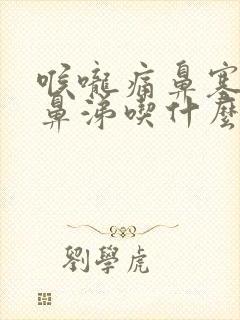 喉嚨痛鼻塞
鼻涕喫什麼
劉學虎